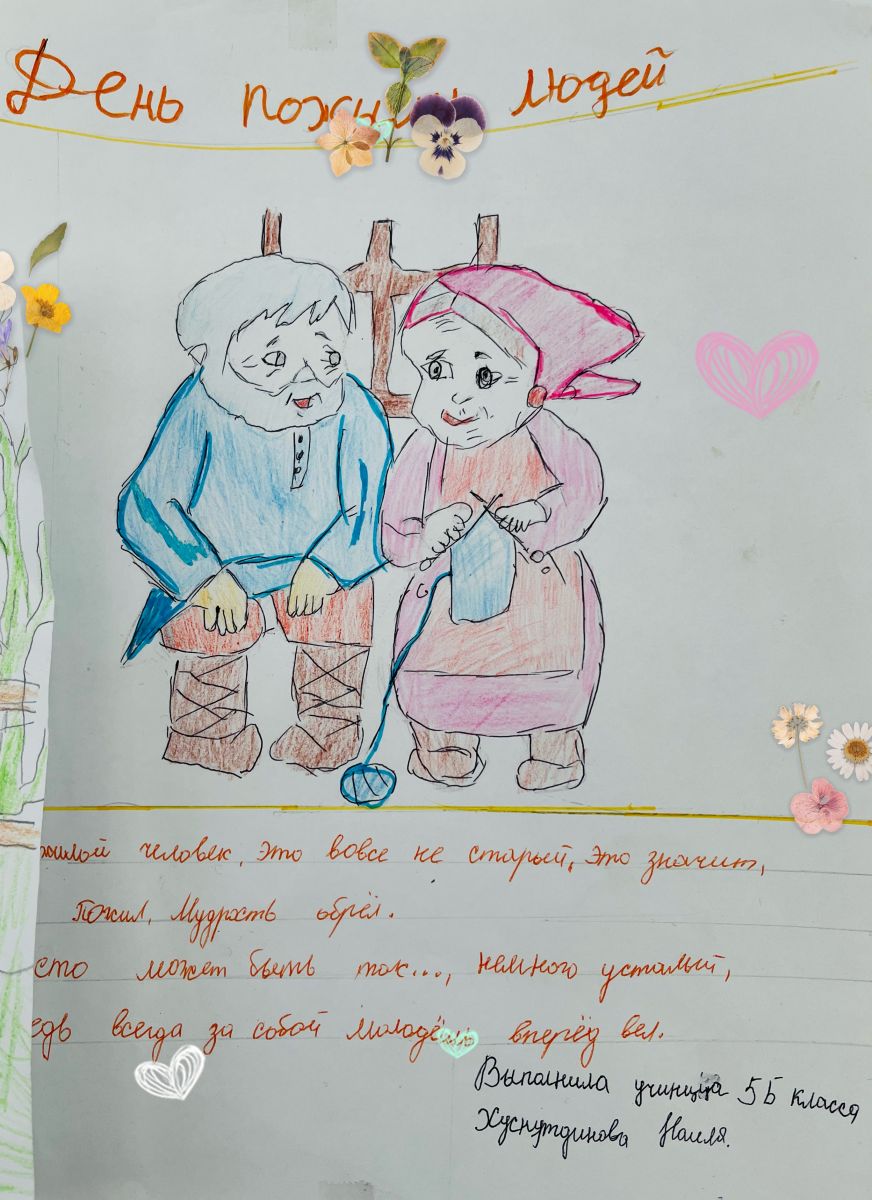 День людей
жилой человек, это вовсе не старый, это значит,
Пожил, Мудрость обрёл.
сто может быть так..., немного усталый,
едь всегда за собой молодёжь вперёд вел.
Выполнила учиница 5Б класса
Хуснутдинова Наиля.